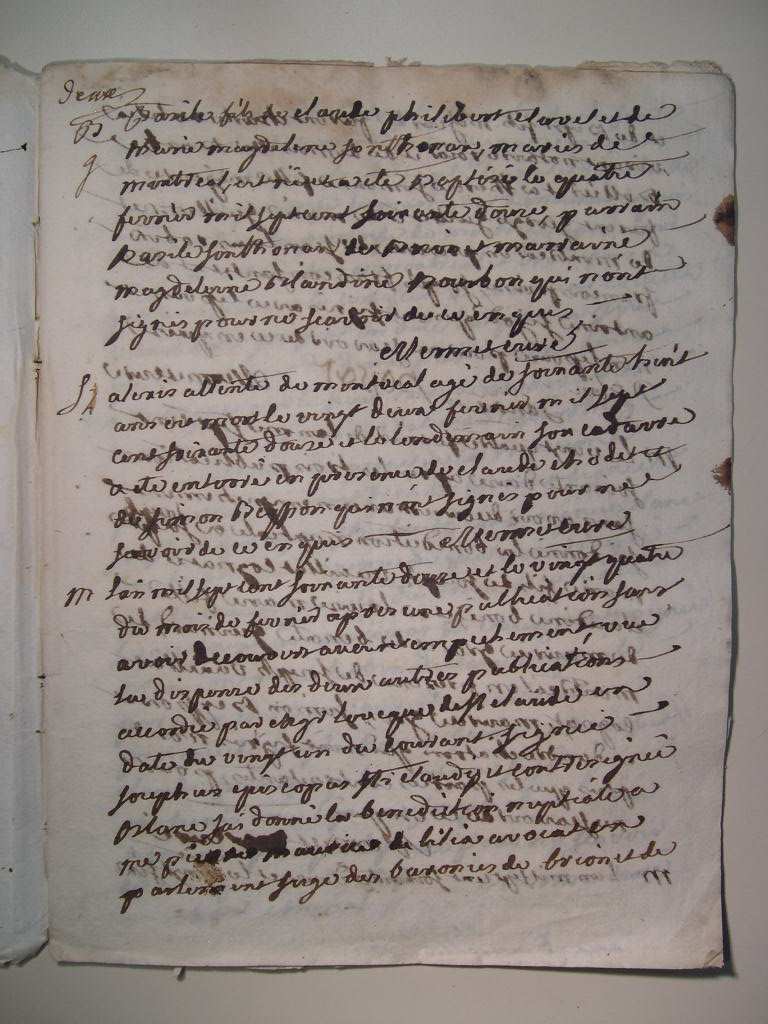 deux
B basile fils de claude philibert clavel et de
marie magdelene sonthonax mariés de
9 montreal est né et a ete baptisé le quatre
fevrier mil sept cent soixante douze parrain
basile sonthonax de brion et marraine
magdeleine blandine bourbon qui n'ont
signés pour ne scavoir de ce enquis
Mermet curé
St alexis attente de montreal agé de soixante huit
ans est mort le vingt deux fevrier mil sept
cent soixante douze et le lendemain son cadavre
a ete enterré en presence de claude
de simon Besson qui n'ont signés pour ne
savoir de ce enquis Mermet curé
m l'an mil sept cent soixante douze et le vingt quatre
du mois de fevrier apres une publication sans
avoir decouvert aucun empechement vue
la dispense des deux autres publications
accordée par Mgr l'eveque de St claude en
date du vingt un du courant signée
josephus episcopus Sti claudy et contresignée
j'ai donné la benediction nuptiale a
me pierre maurice de lilia avocat en
parlement juge des baronies de brion et de